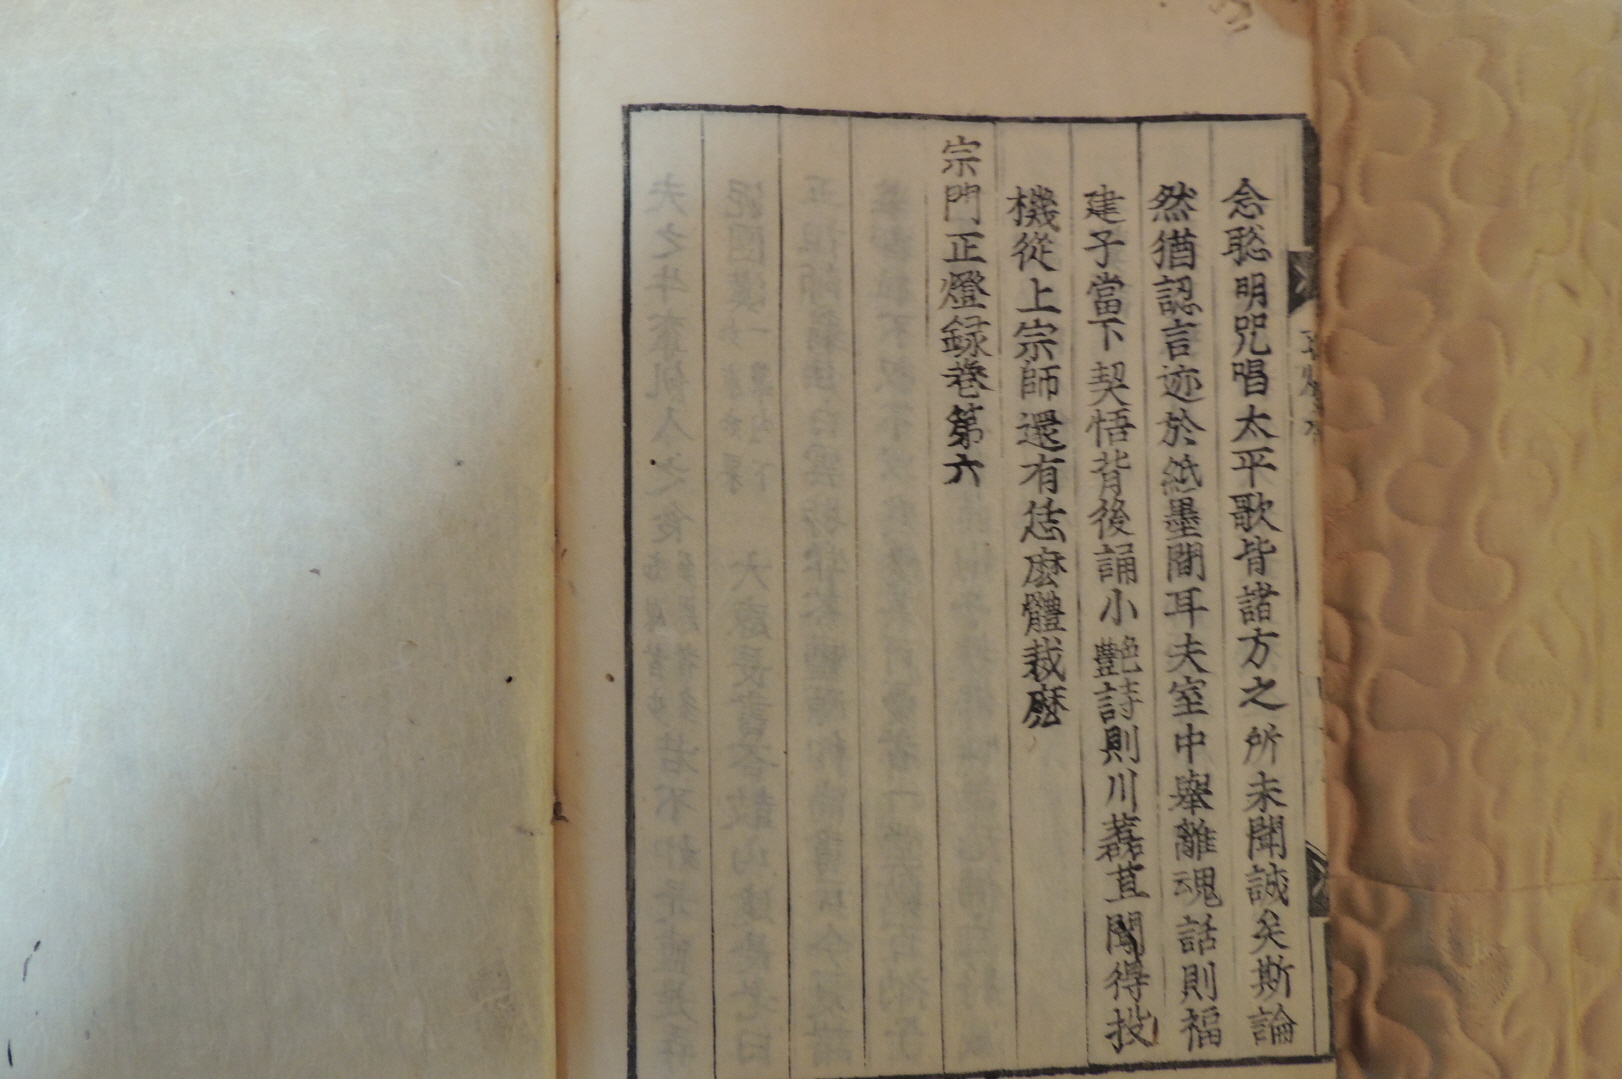 念聡明咒唱太平歌皆諸方之所未聞誠矣斯論
然猶認言迹於紙墨間耳夫室中舉離魂話則福
建子當下契悟背後誦小艶詩則川藞苴聞得投
機從上宗師還有恁麽體裁麽
宗門正燈録卷第六